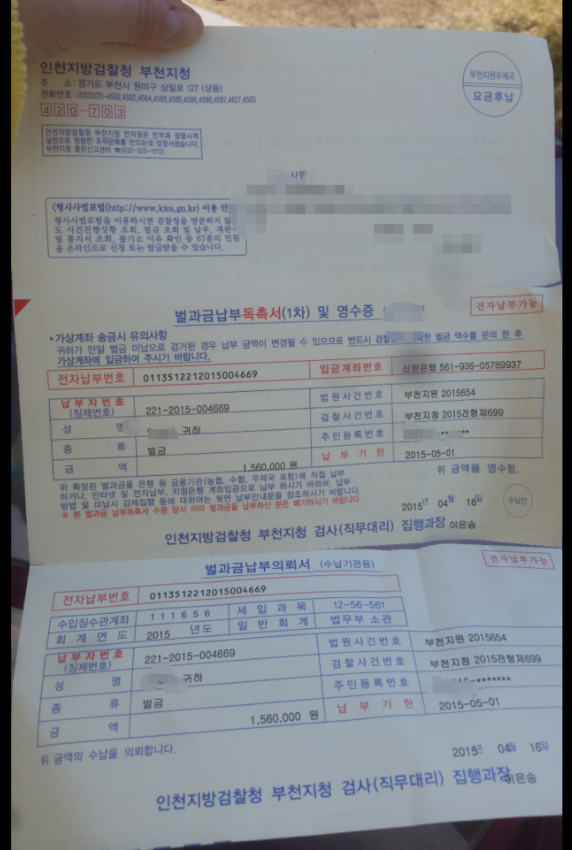 인천지방검찰청 부천지청
주 소 : 경기도 부천시 원미구 상일로 127 (상동)
420-703
부천지원우체국
요금후납
부천지청 클린신고센터 ☎(032-325-1212)
《형사사법포털(http://www.kics.go.kr) 이용 안
형사사법포털을 이용하시면 검찰청을 방문하지 않
도 사건진행상황 조회, 벌금 조회 및 납부, 재판
및 통지서 조회, 불기소 이유 확인 등 67종의 민원
을 온라인으로 신청 또는 발급받을 수 있습니다.
벌과금납부독촉서(1차) 및 영수증
전자납부가능
*가상계좌 송금시 유의사항
귀하가 만일 벌금 미납으로 검거된 경우 납부 금액이 변경될 수 있으므로 반드시 검찰 벌금 액수를 문의 한 후
가상계좌에 입금하여 주시기 바랍니다.
전자납부번호 0113512212015004669 입금계좌번호 신한은행 561-936-05789937
납부자번호 (징제번호) 221-2015-004669 법원사건번호 부천지원 2015654
검찰사건번호 부천지청 2015전형제699
성 명 귀하 주민등록번호
종 류 벌금 납부기한 2015-05-01
금 액 1,560,000 원 위 금액을 영수함.
위 확정된 벌과금을 은행 등 금융기관(농협, 수협, 우체국 포함)에 직접 납부
하거나, 인터넷 및 전자납부, 지정은행 계좌입금으로 납부 하시기 바라며, 납부
방법 및 미납시 강제집행 등에 대하여는 뒷면 납부안내문을 참조하시기 바랍니다.
* 본 벌과금 납부독촉서 수령 당시 이미 벌과금을 납부하신 분은 폐기하시기 바랍니다.
2015년 04월 16일 수납인
인천지방검찰청 부천지청 검사(직무대리) 집행과장 이은승
벌과금납부의뢰서 (수납기관용)
전자납부가능
전자납부번호 0113512212015004669
수입징수관계좌 111656 세입과목 12-56-561
회계연도 2015 년도 일반회계 법무부 소관
납부자번호 (징제번호) 221-2015-004669 법원사건번호 부천지원 2015654
검찰사건번호 부천지청 2015전형제699
성 명 귀하 주민등록번호
종 류 벌금 납부기한 2015-05-01
금 액 1,560,000 원
위 금액의 수납을 의뢰합니다.
2015년 04월 16일
인천지방검찰청 부천지청 검사(직무대리) 집행과장 이은승